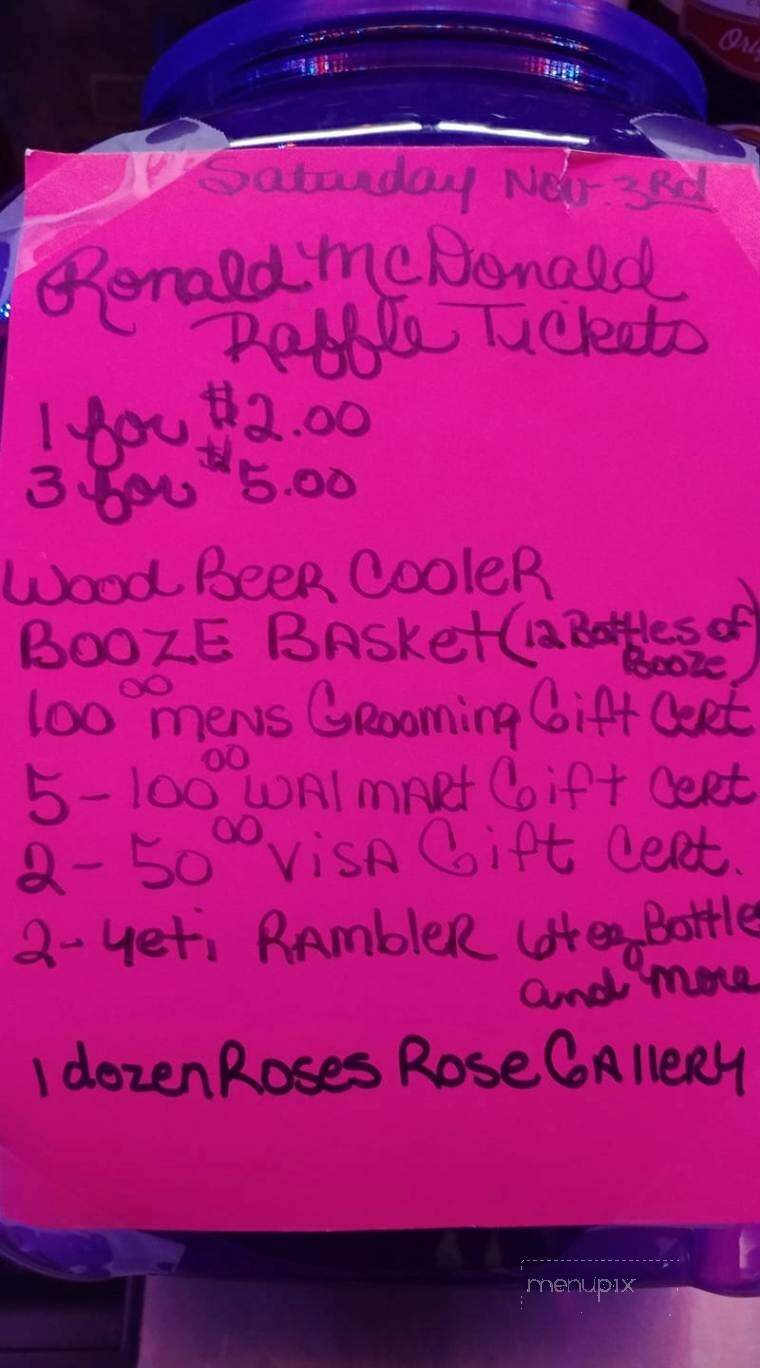 Ori
Saturday Nov. 3Rd
Ronald McDonald
Raffle Tickets
1 for $2.00
3 for $5.00
Wood Beer Cooler
BOOZE BASket (12 Bottles of
Booze)
100 00 mens Grooming Gift Cert
5 - 100 00 WAlmARt Gift Cert
2 - 50 00 ViSA Gift Cert.
2 - Yeti RAmbleR 64 oz Bottle
and more
1 dozen Roses Rose GAllERY
menupix